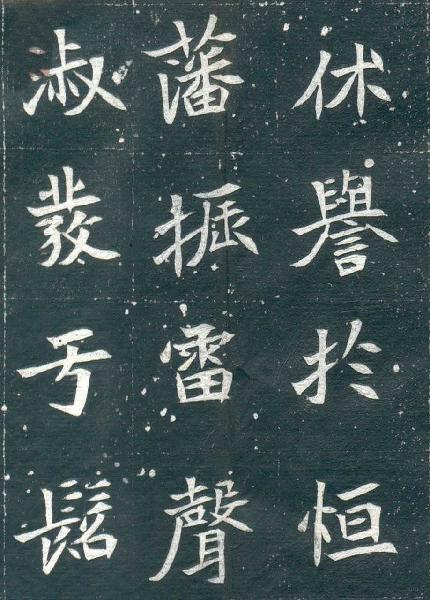 休譽於恒
藩振雷聲
淑發于髫